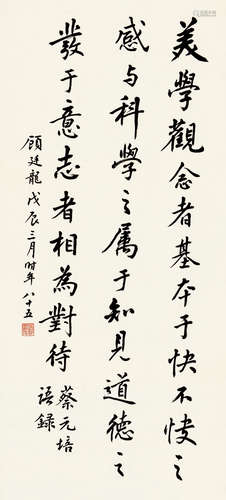 美學觀念者基本于快不快之
感与科學之属于知見道德之
發于意志者相為對待
蔡元培
语録
顧廷龍戊辰三月时年八十五